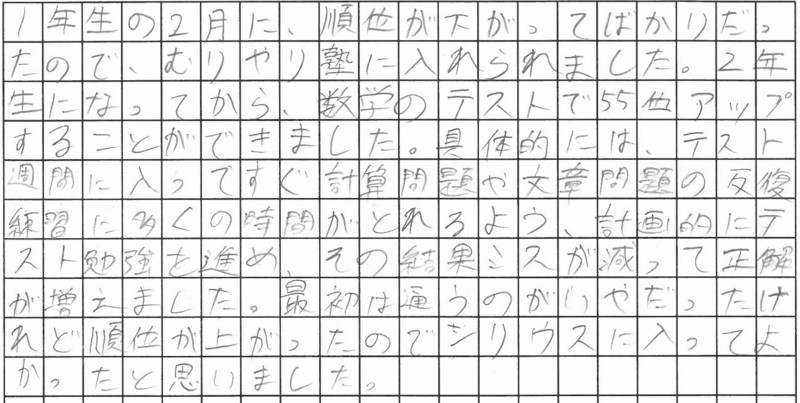 1年生の2月に、順位が下がってばかりだっ
たので、むりやり塾に入れられました。2年
生になってから、数学のテストで55位アップ
することができました。具体的には、テスト
週間に入ってすぐ計算問題や文章問題の反復
練習に多くの時間がとれるよう、計画的にテ
スト勉強を進め、その結果ミスが減って正解
が増えました。最初は通うのがいやだったけ
れど順位が上がったのでシリウスに入ってよ
かったと思いました。